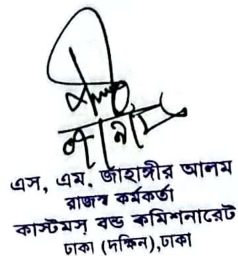 এস, এম, জাঁহাঙ্গীর আলম
রাজস্ব কর্মকর্তা
কাস্টমস্ বন্ড কমিশনারেট
ঢাকা (দক্ষিন),ঢাকা